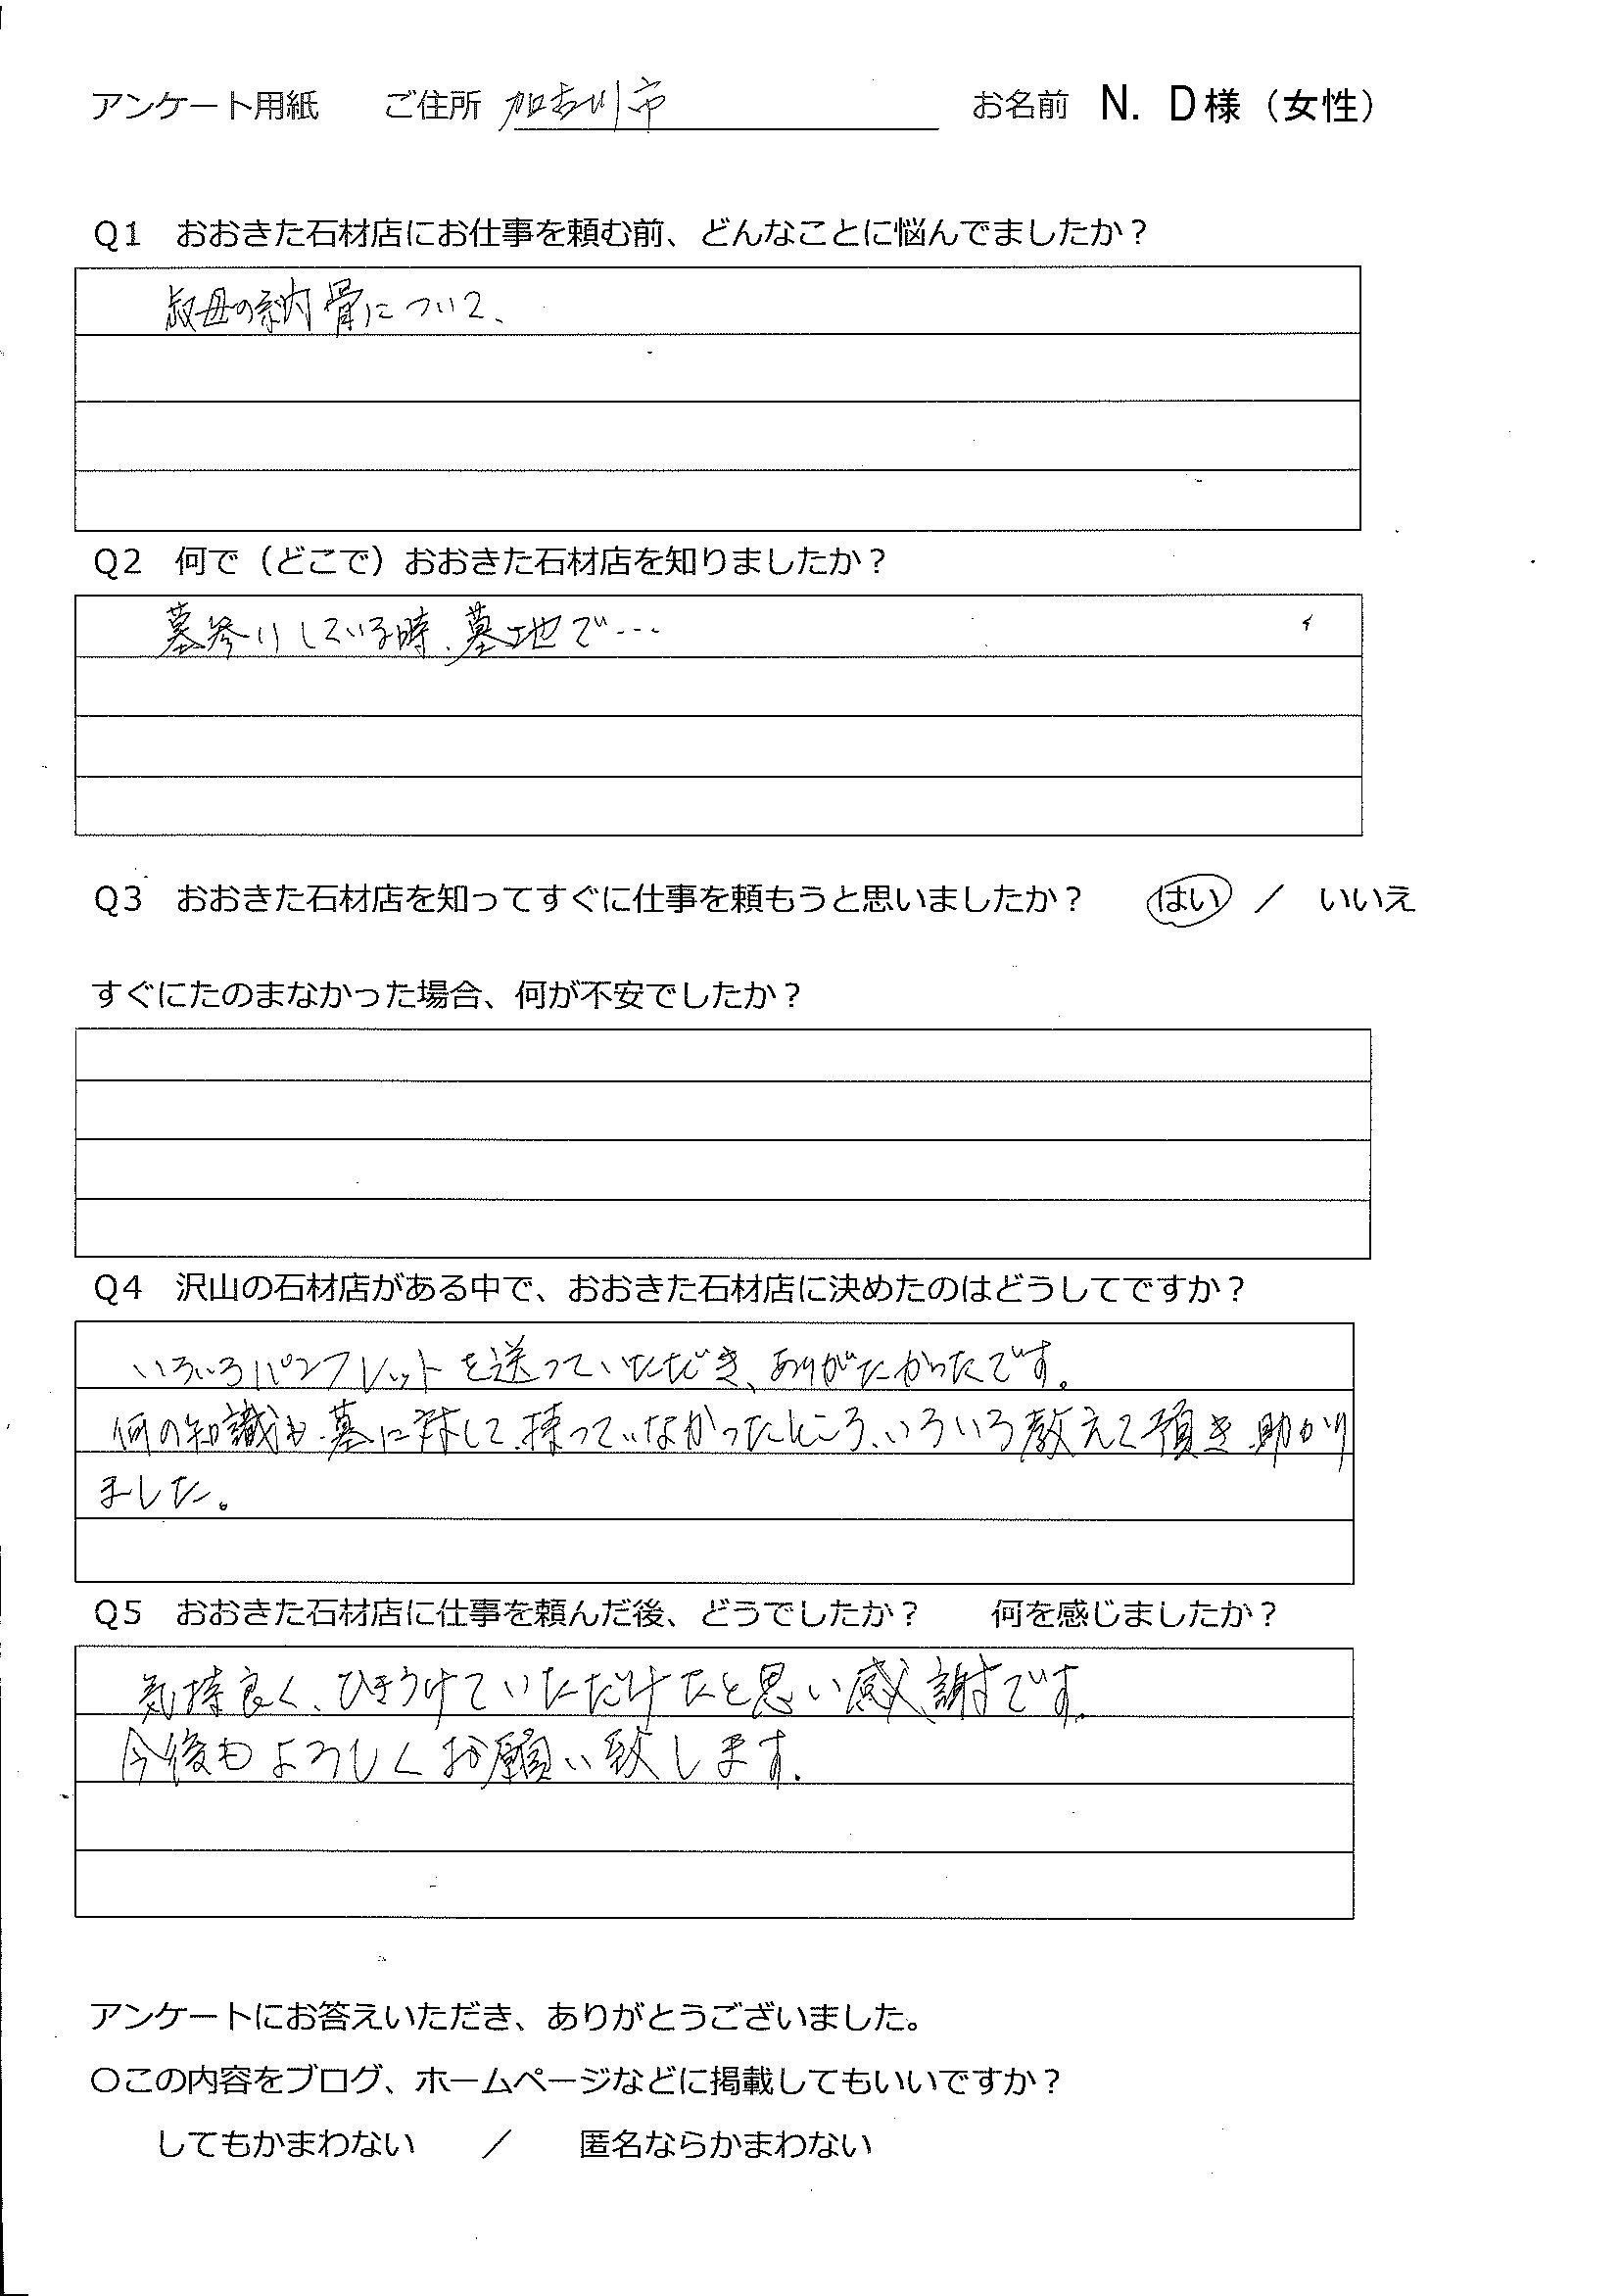 アンケート用紙　ご住所　加古川市　お名前　N．D様（女性）
Q1　おおきた石材店にお仕事を頼む前、どんなことに悩んでましたか？
叔母の納骨について、
Q2　何で（どこで）おおきた石材店を知りましたか？
墓参りしている時、墓地で…
Q3　おおきた石材店を知ってすぐに仕事を頼もうと思いましたか？　はい　／　いいえ
すぐにたのまなかった場合、何が不安でしたか？
Q4　沢山の石材店がある中で、おおきた石材店に決めたのはどうしてですか？
いろいろパンフレットを送っていただき、ありがたかったです。
何の知識も墓に対して、持っていなかったところ、いろいろ教えて頂き助かり
ました。
Q5　おおきた石材店に仕事を頼んだ後、どうでしたか？　何を感じましたか？
気持良く、ひきうけていただけたと思い感謝です。
今後もよろしくお願い致します。
アンケートにお答えいただき、ありがとうございました。
〇この内容をブログ、ホームページなどに掲載してもいいですか？
してもかまわない　／　匿名ならかまわない